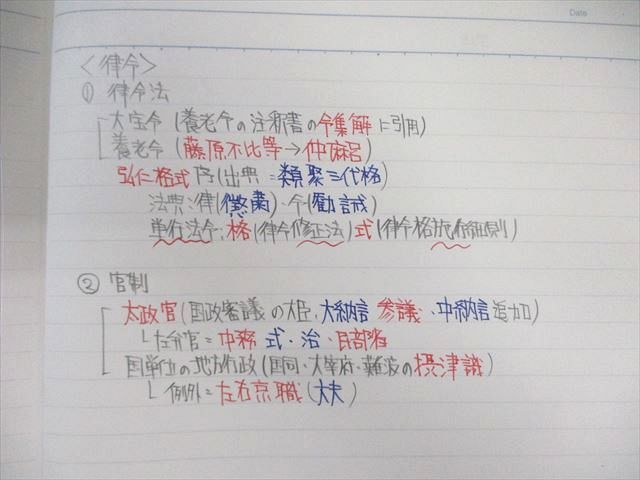 Date
<律令>
① 律令法
大宝令(養老令の注釈書の令集解に引用)
養老令(藤原不比等→仲麻呂)
弘仁格式序(出典=類聚三代格)
法典:律(懲粛)・令(勧誡)
単行法令:格(律令修正法)式(律令格施行細則)
② 官制
太政官(国政審議の大臣、大納言 参議・中納言追加)
左弁官=中務 式・治・民部省
国単位の地方行政(国司・大宰府・難波の摂津識)
例外=左右京職(大夫)